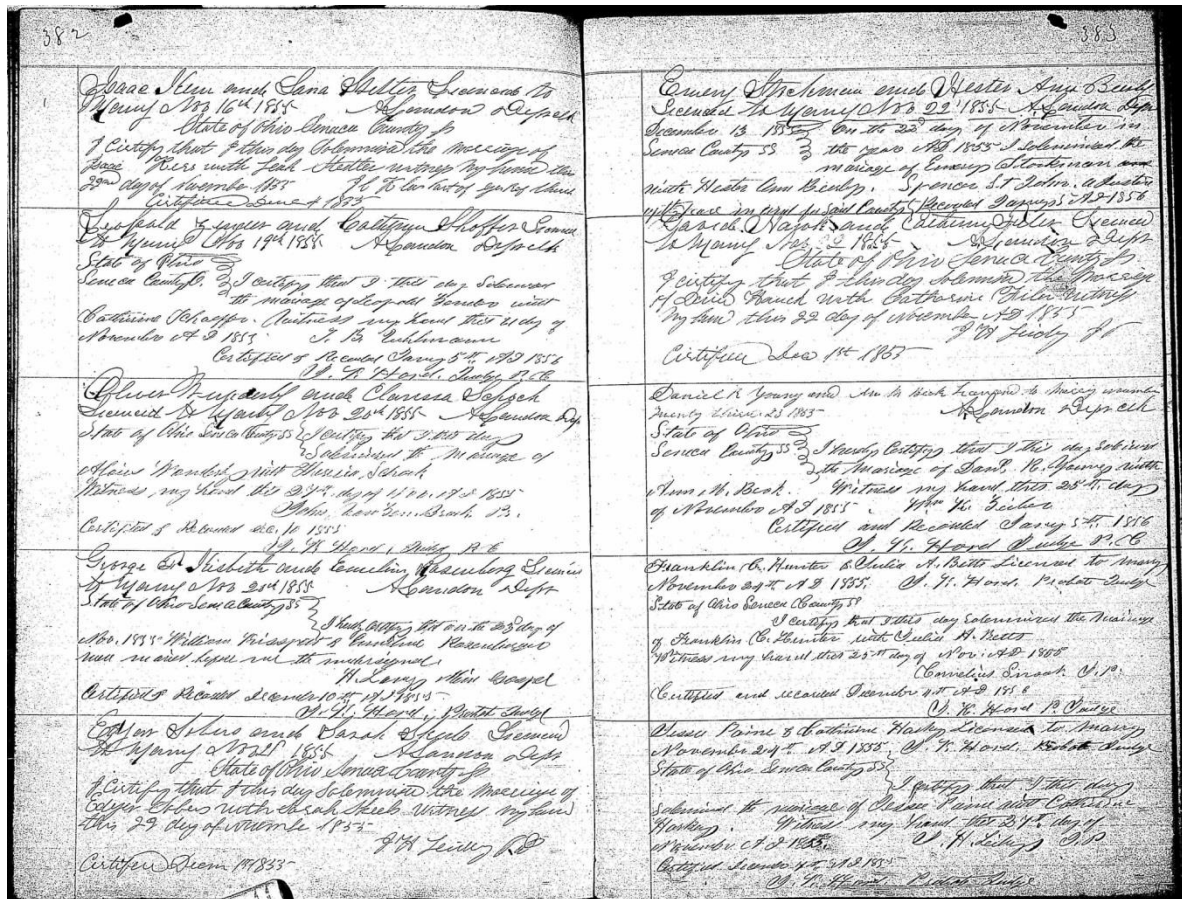 382
Isaac Kern and Lana Stetler Licenced to
Marry Nov 16th 1855 A Landon Dep clk
State of Ohio Seneca County ss
I Certify that I this day Solemnized the Marriage of
Isaac Kern with Leah Stetler witness my hand this
22nd day of November 1855 of the Church
Certified 1855
Leopold and Cathrin Shoffer Licened
to Marry Nov 19th 1855 A Landon Dep clk
State of Ohio
Seneca County S. I certify that I this day Solemnised
the mariage of Leopold with
Catharine Schaeffer. Witness my hand this 21 day of
November A D 1855 J. B.
Certified & Recorded Jany 5th A D 1856
J. K. Hord. Judge P. C.
Oliver and Clarissa Schoch
Licened to Marry Nov 20th 1855 A Landon Dep
State of Ohio Seneca County SS I certify that I this day
Solemnised the mariage of
with Schoch
Witness my hand this 27th day of Nov. A D 1855
John
Certified & Recorded Dec. 10 1855
J. K. Hord, Judge P. C
George and Emelin Rosenberg Licened
to Marry Nov 22nd 1855 A Landon Dept
State of Ohio Seneca County SS
I hereby certify that on the 23rd day of
Nov. 1855 William & Rosenberger
were maried before me the undersigned.
H. Lang Min Gospel
Certified & Recorded December 10th A D 1855
J. K. Hord, Probate Judge
Sobers and Sarah Licened
to Marry Nov 1855 A Landon Dept
State of Ohio Seneca County ss
I Certify that I this day Solemnized the Marriage of
Sobers with Sarah witness my hand
this 29 day of November 1855
J H Leidy J P
Certified 1st 1855
383
Emery Stockman and Hester Ann
Licened to Marry Nov 22d 1855 A Landon Dept
December 13 1855 On the 22d day of November in
Seneca County SS the year A D 1855 I solemnised the
mariage of Emery Stockman and
Hester Ann Spencer St John. a Justice
of Peace in and for Said County Recorded January 5 A D 1856
David and Catharine Licened
to Marry Nov 22 1855 A Landon Dept
State of Ohio Seneca County ss.
I certify that I this day Solemnized the Marriage
of David with Catharine Witness
my hand this 22 day of November A D 1855
J H Leidy J P
Certified Dec 1st 1855
Daniel K Young and Ann M Beck Licensed to Marry November
twenty three 23 1855 A Landon Dep clk
State of Ohio
Seneca County SS I hereby Certify that I this day Solemnised
the Mariage of Danl. K. Young with
Ann. M. Beck. Witness my hand this 25th day
of November A D 1855. Wm K. Zieber
Certified and Recorded Jany 5th 1856
J. K. Hord Judge P. C
Franklin C. Hunter & Julia A. Betts Licensed to marry
November 24th A D 1855. J. K. Hord. Probate Judge
State of Ohio Seneca County SS
I certify that I this day solemnized the Mariage
of Franklin C. Hunter with Julia A. Betts
Witness my hand this 25th day of Nov. A D 1855
Cornelius Snook J. P.
Certified and recorded December 4th A D 1855
J. K. Hord P. Judge
Jesse Paine & Catharine Harky Licensed to Marry
November 24th A D 1855. J. K. Hord. Probate Judge
State of Ohio Seneca County SS
I certify that I this day
solemnised the mariage of Jesse Paine with Catharine
Harky. Witness my hand this 27th day of
November A D 1855. J. H. Leidy J P
Certified December 4th A D 1855
J. K. Hord. Probate Judge